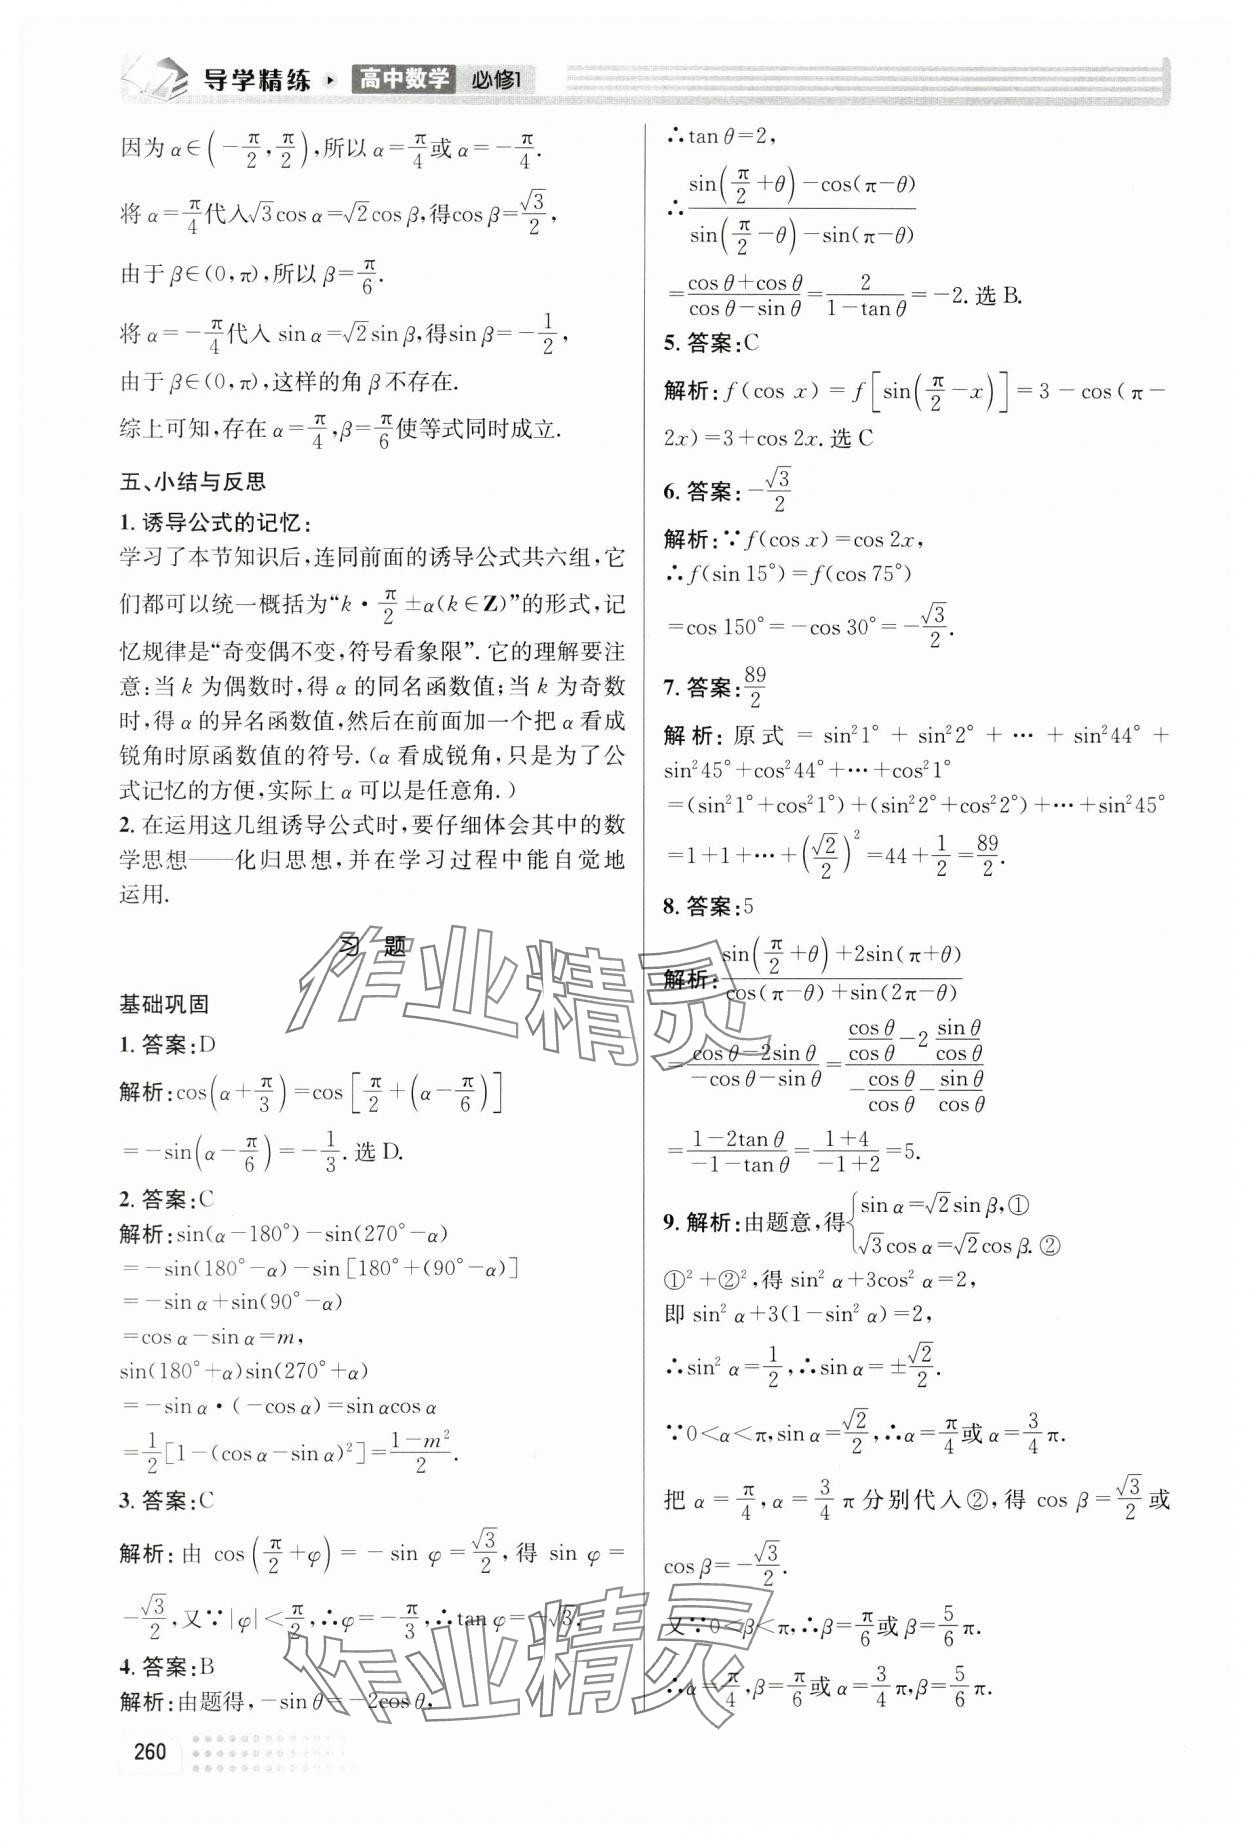 导学精练 高中数学 必修1
因为 α∈(-π/2, π/2),所以 α=π/4或 α=-π/4.
将 α=π/4代入√3cos α=√2cos β,得cos β=√3/2,
由于 β∈(0,π),所以 β=π/6.
将 α=-π/4代入 sin α=√2sin β,得sin β=-1/2,
由于 β∈(0,π),这样的角 β 不存在.
综上可知,存在 α=π/4,β=π/6使等式同时成立.
五、小结与反思
1. 诱导公式的记忆:
学习了本节知识后,连同前面的诱导公式共六组,它
们都可以统一概括为“k·π/2±α(k∈Z)”的形式,记
忆规律是“奇变偶不变,符号看象限”. 它的理解要注
意:当 k 为偶数时,得 α 的同名函数值;当 k 为奇数
时,得 α 的异名函数值,然后在前面加一个把 α 看成
锐角时原函数值的符号.(α 看成锐角,只是为了公
式记忆的方便,实际上 α 可以是任意角.)
2. 在运用这几组诱导公式时,要仔细体会其中的数
学思想——化归思想,并在学习过程中能自觉地
运用.
习 题
基础巩固
1. 答案:D
解析:cos(α+π/3)=cos[π/2+(α-π/6)]
=-sin(α-π/6)=-1/3. 选 D.
2. 答案:C
解析:sin(α-180°)-sin(270°-α)
=-sin(180°-α)-sin[180°+(90°-α)]
=-sin α+sin(90°-α)
=cos α-sin α=m,
sin(180°+α)sin(270°+α)
=-sin α·(-cos α)=sin αcos α
=1/2[1-(cos α-sin α)²]=(1-m²)/2.
3. 答案:C
解析:由 cos(π/2+φ)=-sin φ=√3/2,得 sin φ=
-√3/2,又∵|φ|<π/2,∴φ=-π/3,∴tan φ=-√3.
4. 答案:B
解析:由题得,-sin θ=-2cos θ,
∴tan θ=2,
∴[sin(π/2+θ)-cos(π-θ)]/[sin(π/2-θ)-sin(π-θ)]
=(cos θ+cos θ)/(cos θ-sin θ)=2/(1-tan θ)=-2. 选 B.
5. 答案:C
解析:f(cos x)=f[sin(π/2-x)]=3-cos(π-
2x)=3+cos 2x. 选 C
6. 答案:-√3/2
解析:∵f(cos x)=cos 2x,
∴f(sin 15°)=f(cos 75°)
=cos 150°=-cos 30°=-√3/2.
7. 答案:89/2
解析:原式=sin²1°+sin²2°+…+sin²44°+
sin²45°+cos²44°+…+cos²1°
=(sin²1°+cos²1°)+(sin²2°+cos²2°)+…+sin²45°
=1+1+…+(√2/2)²=44+1/2=89/2.
8. 答案:5
解析:[sin(π/2+θ)+2sin(π+θ)]/[cos(π-θ)+sin(2π-θ)]
=(cos θ-2sin θ)/(-cos θ-sin θ)=(cos θ/cos θ-2 sin θ/cos θ)/(-cos θ/cos θ-sin θ/cos θ)
=(1-2tan θ)/(-1-tan θ)=(1+4)/(-1+2)=5.
9. 解析:由题意,得{sin α=√2sin β,①
√3cos α=√2cos β. ②
①²+②²,得 sin² α+3cos² α=2,
即 sin² α+3(1-sin² α)=2,
∴sin² α=1/2,∴sin α=±√2/2.
∵0<α<π,sin α=√2/2,∴α=π/4或 α=3/4π.
把 α=π/4,α=3/4π分别代入②,得 cos β=√3/2或
cos β=-√3/2.
又∵0<β<π,∴β=π/6或 β=5/6π.
∴α=π/4,β=π/6或 α=3/4π,β=5/6π.
260
作业精灵
作业精灵